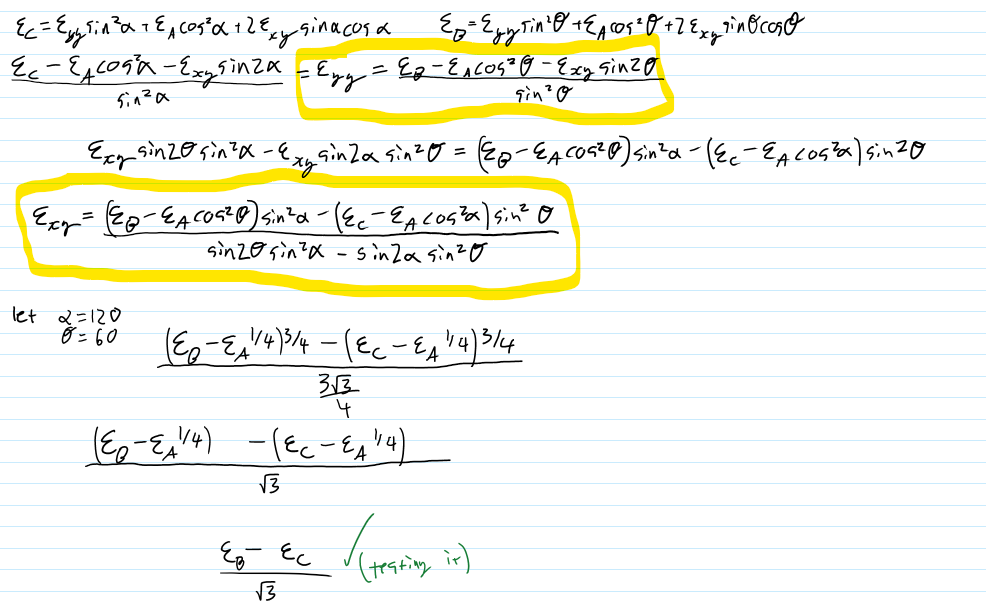 ε_C = ε_yy sin²α + ε_A cos²α + 2ε_xy sinα cosα    ε_B = ε_yy sin²θ + ε_A cos²θ + 2ε_xy sinθcosθ
(ε_C − ε_A cos²α − ε_xy sin2α)/(sin²α) = ε_yy = (ε_B − ε_A cos²θ − ε_xy sin2θ)/(sin²θ)
ε_xy sin2θ sin²α − ε_xy sin2α sin²θ = (ε_B − ε_A cos²θ) sin²α − (ε_C − ε_A cos²α) sin²θ
ε_xy = ((ε_B − ε_A cos²θ) sin²α − (ε_C − ε_A cos²α) sin²θ)/(sin2θ sin²α − sin2α sin²θ)
let α = 120
θ = 60
((ε_B − ε_A 1/4) 3/4 − (ε_C − ε_A 1/4) 3/4)/(3√3/4)
((ε_B − ε_A 1/4) − (ε_C − ε_A 1/4))/√3
(ε_B − ε_C)/√3 ✓ (testing it)